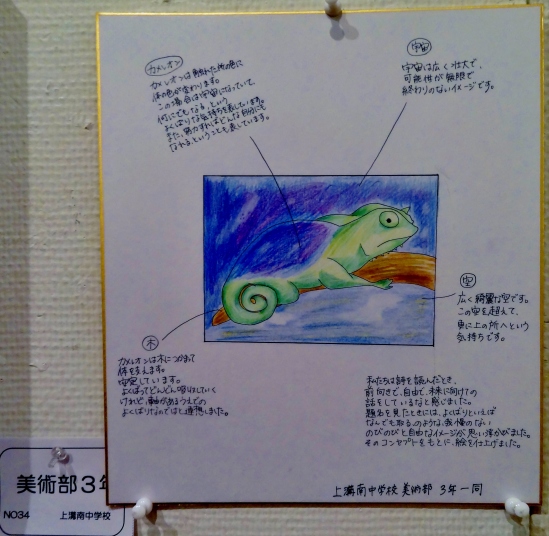 カメレオン
カメレオンは触れた他の色に
体の色が変わります。
この場合は宇宙になっていて、
何にでもなる、という
よくばりな気持ちを表しています。
また、努力すればどんな自分にも
なれるということも表しています。
宇宙
宇宙は広く壮大で、
可能性が無限で
終わりのないイメージです。
空
広く綺麗な空です。
この空を超えて、
更に上の所へという
気持ちです。
木
カメレオンは木につかまって
体を支えます。
安定しています。
よくばってどんどん吸収していく
けれど、軸があるうえでの
よくばりなのではと連想しました。
私たちは詩を読んだとき、
前向きで、自由で、未来に向けての
話をしているなと感じました。
題名を見たときには、よくばりといえば
なんでも取る、のような、我慢のない
のびのびと自由なイメージが思い浮かびました。
そのコンセプトをもとに、絵を仕上げました。
上溝南中学校 美術部 3年一同
美術部3年
NO34 上溝南中学校